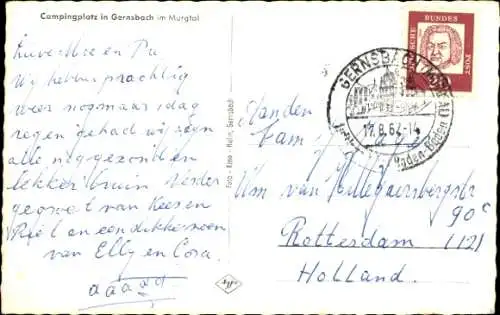 Campingplatz in Gernsbach im Murgtal
Lieve Mie en Pa
Wij hebben prachtig
weer nog maar 1 dag
regen gehad wij zijn
alle nog gezond en
lekker bruin verder
gegroet van Kees en
Riet en een dikke zoen
van Elly en Cora.
Foto - Rösa - Hahn, Gernsbach
Agfa
DEUTSCHE BUNDESPOST
GERNSBACH
17.8.62-14
Baden-Baden
Aan den
Fam
van Hillegaersbergstr
90c
Rotterdam (12)
Holland.